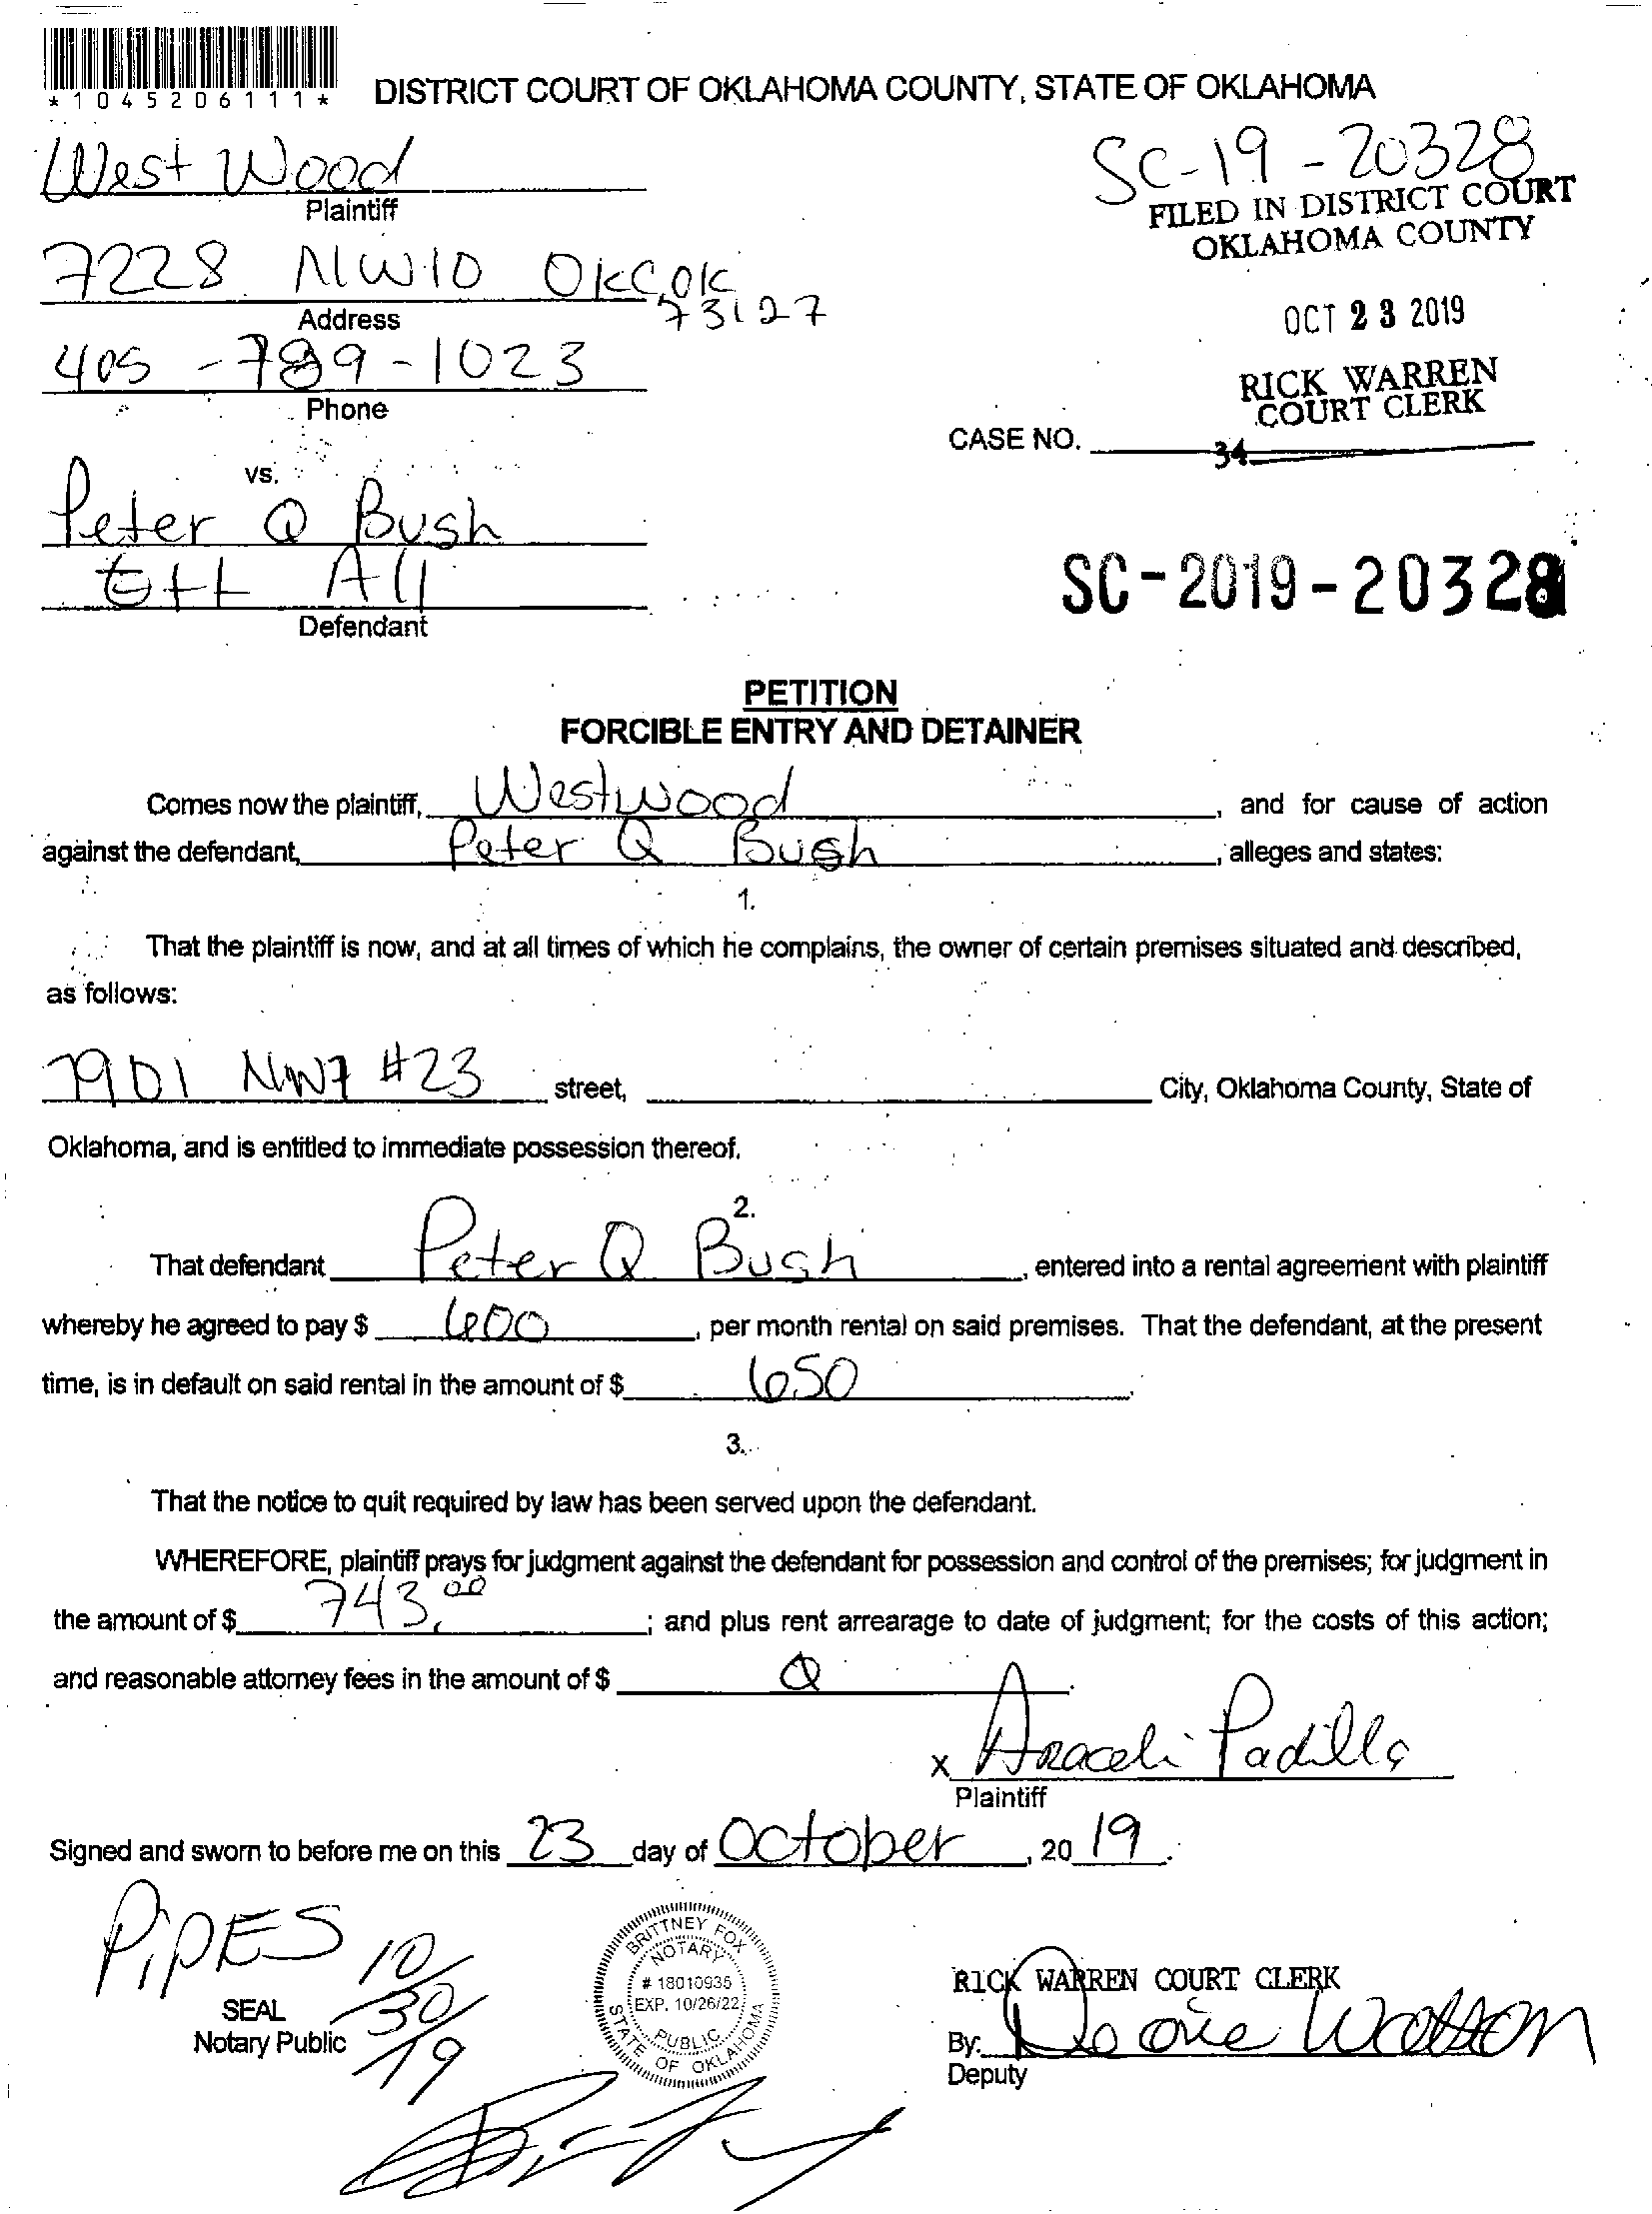 *1045206111*
DISTRICT COURT OF OKLAHOMA COUNTY, STATE OF OKLAHOMA
West Wood
Plaintiff
SC-19-20328
FILED IN DISTRICT COURT
OKLAHOMA COUNTY
7228 NW10 OKC OK
73127
Address
OCT 23 2019
405-789-1023
Phone
RICK WARREN
COURT CLERK
CASE NO.
34
vs.
Peter Q Bush
All
Defendant
SC-2019-20328
PETITION
FORCIBLE ENTRY AND DETAINER
Comes now the plaintiff, Westwood, and for cause of action
against the defendant, Peter Q Bush, alleges and states:
1.
That the plaintiff is now, and at all times of which he complains, the owner of certain premises situated and described,
as follows:
7901 NW7 #23 street, City, Oklahoma County, State of
Oklahoma, and is entitled to immediate possession thereof.
2.
That defendant Peter Q Bush, entered into a rental agreement with plaintiff
whereby he agreed to pay $ 600, per month rental on said premises. That the defendant, at the present
time, is in default on said rental in the amount of $ 650.
3.
That the notice to quit required by law has been served upon the defendant.
WHEREFORE, plaintiff prays for judgment against the defendant for possession and control of the premises; for judgment in
the amount of $ 743.00; and plus rent arrearage to date of judgment; for the costs of this action;
and reasonable attorney fees in the amount of $
x Araceli Padilla
Plaintiff
Signed and sworn to before me on this 23 day of October, 2019.
PiPES
10/30/19
SEAL
Notary Public
BRITTNEY FOX
NOTARY
# 18010935
EXP. 10/26/22
PUBLIC
STATE OF OKLAHOMA
RICK WARREN COURT CLERK
By:
Deputy